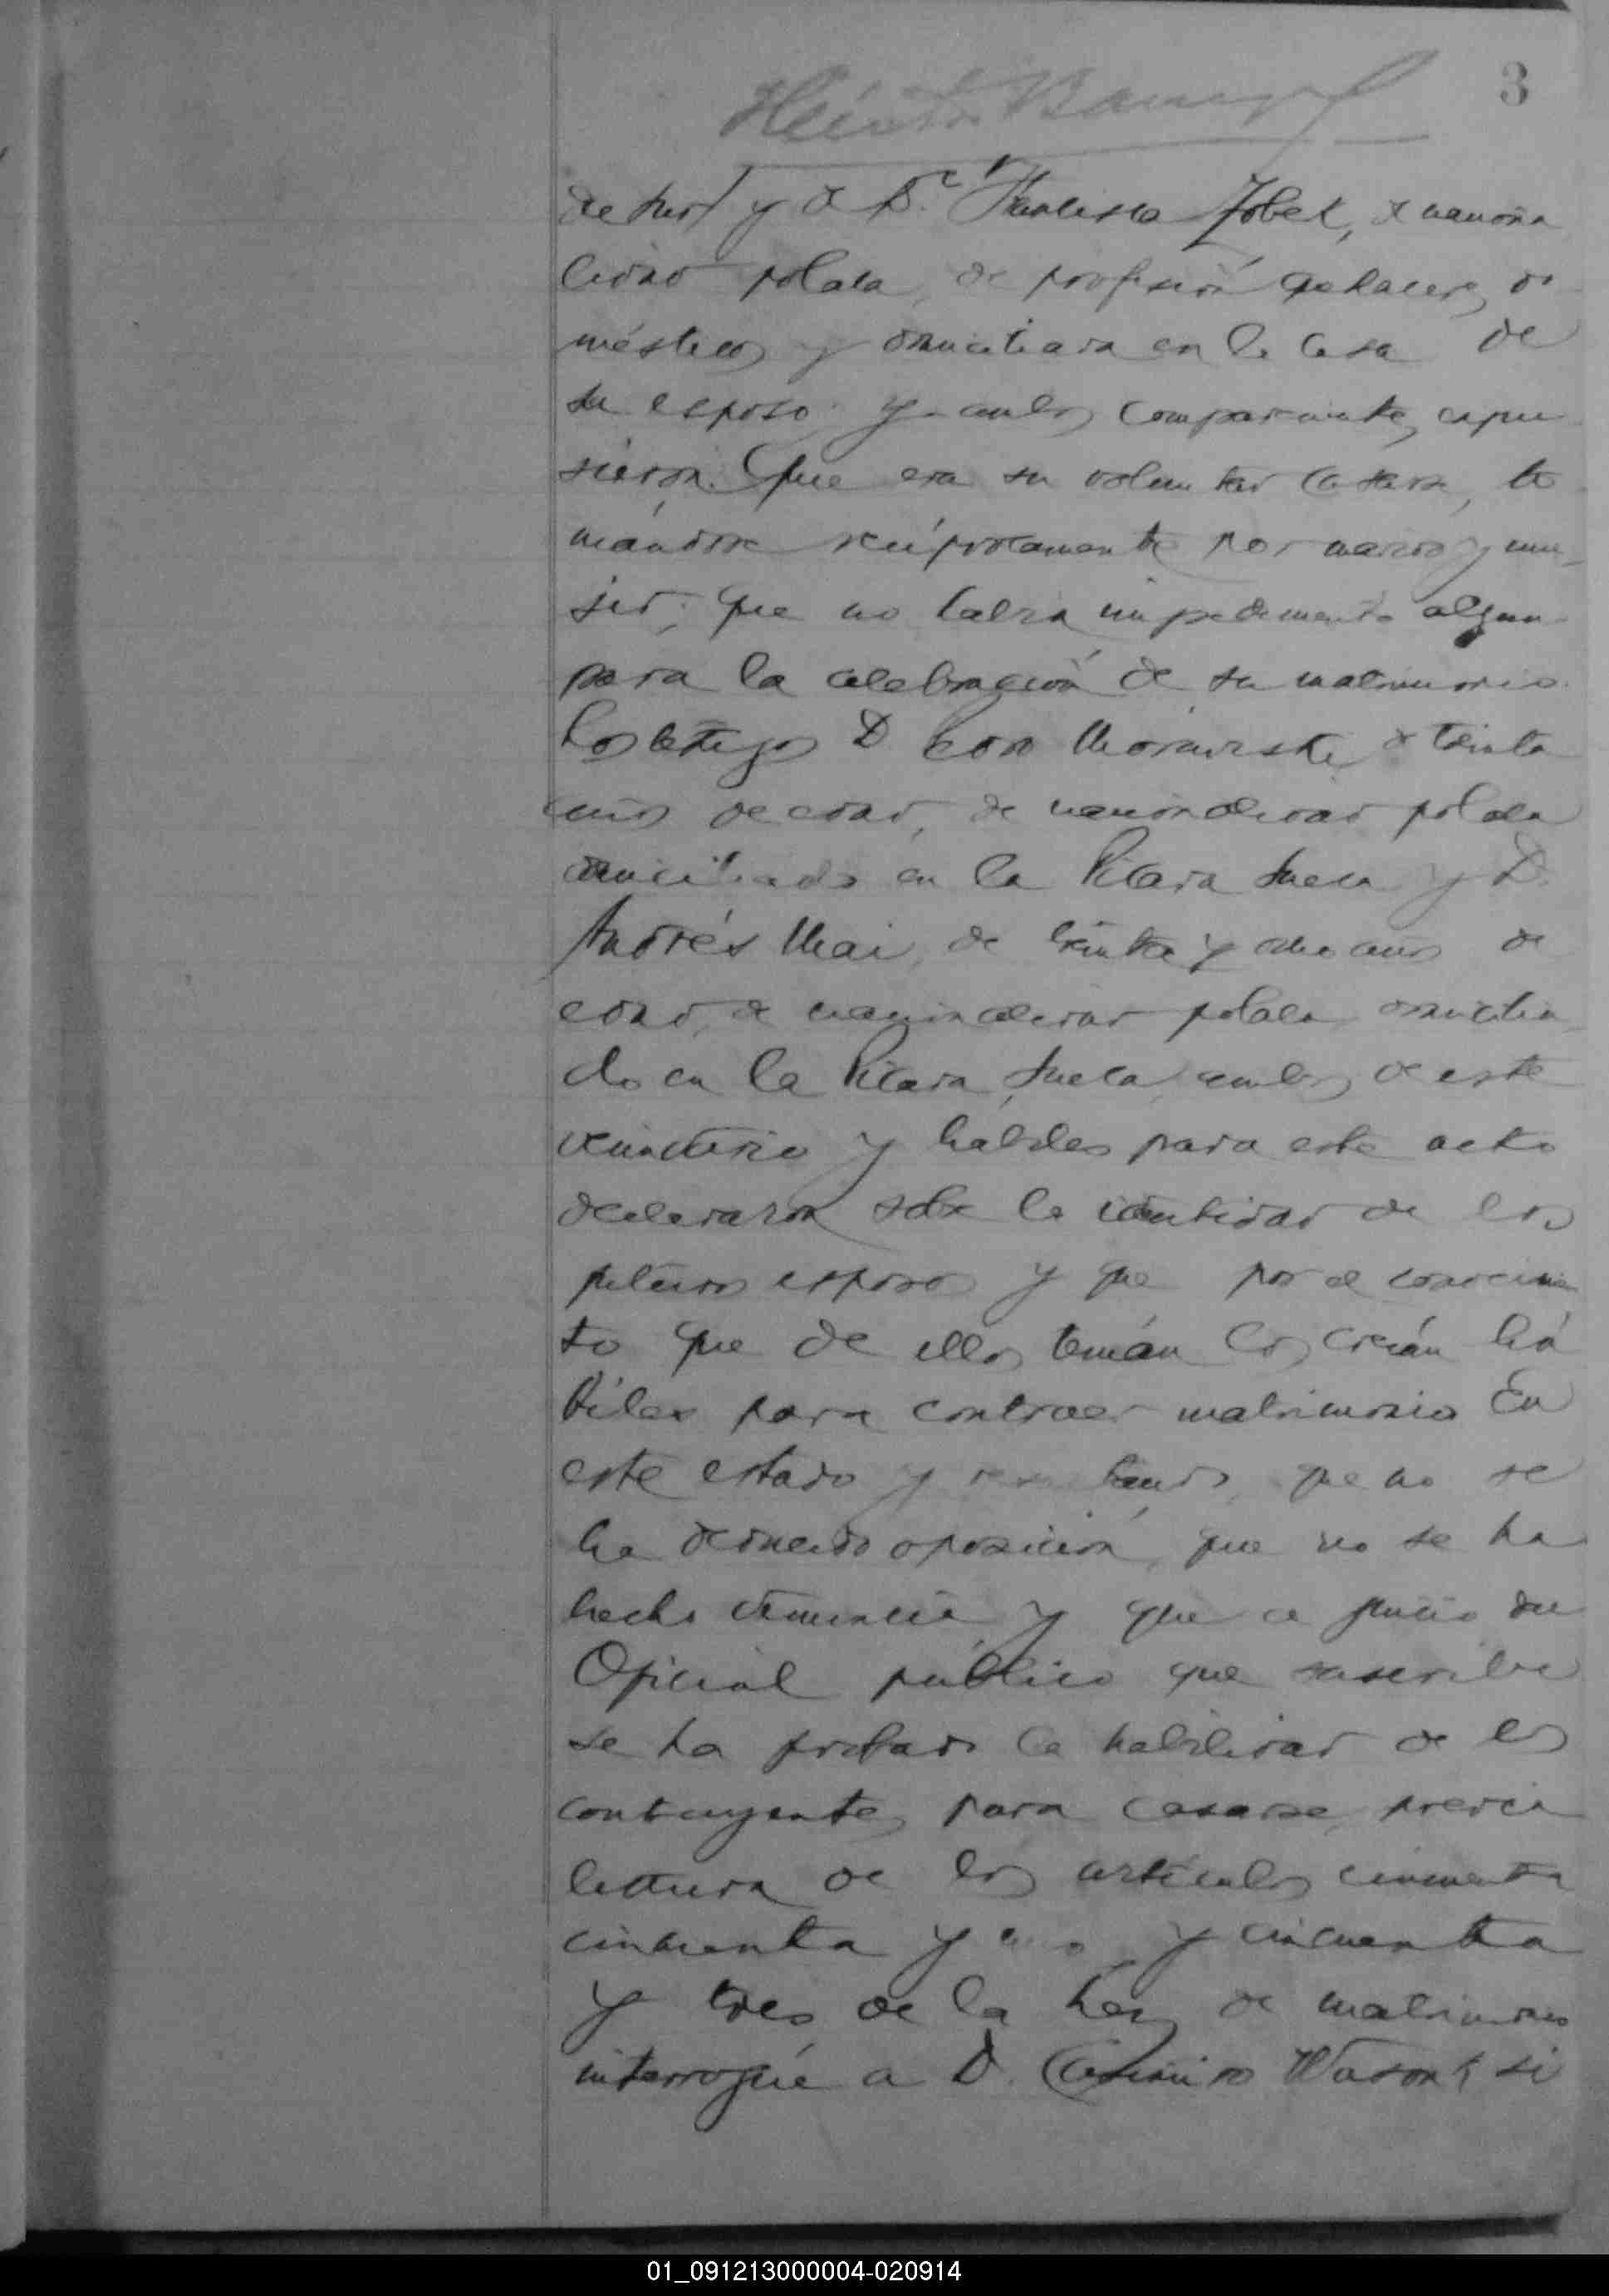 3
y de Dª Jobek, de naciona
lidad polaca, de profesión quehaceres do
mésticos y domiciliada en la casa de
su esposo y ambos comparecientes expu
sieron: Que era su voluntad casarse, to
mándose recíprocamente por marido y mu-
jer; que no había impedimento alguno
para la celebración de su matrimonio.
Los testigos D. de treinta
años de edad, de nacionalidad polaca
domiciliado en la Picada Sueca y D.
Andrés Mai, de treinta y ocho años de
edad, de nacionalidad polaca domicilia
do en la Picada Sueca, ambos de este
vecindario y hábiles para este acto
declararon sobre la identidad de los
futuros esposos y que por el conocimien
to que de ellos tenían los creían há
biles para contraer matrimonio. En
este estado y resultando que no se
ha deducido oposición, que no se ha
hecho denuncia y que a juicio del
Oficial público que suscribe
se ha probado la habilidad de los
contrayentes para casarse, previa
lectura de los artículos cincuenta
cincuenta y uno y cincuenta
y tres de la Ley de matrimonio
interrogué a D. Casimiro si
01_091213000004-020914